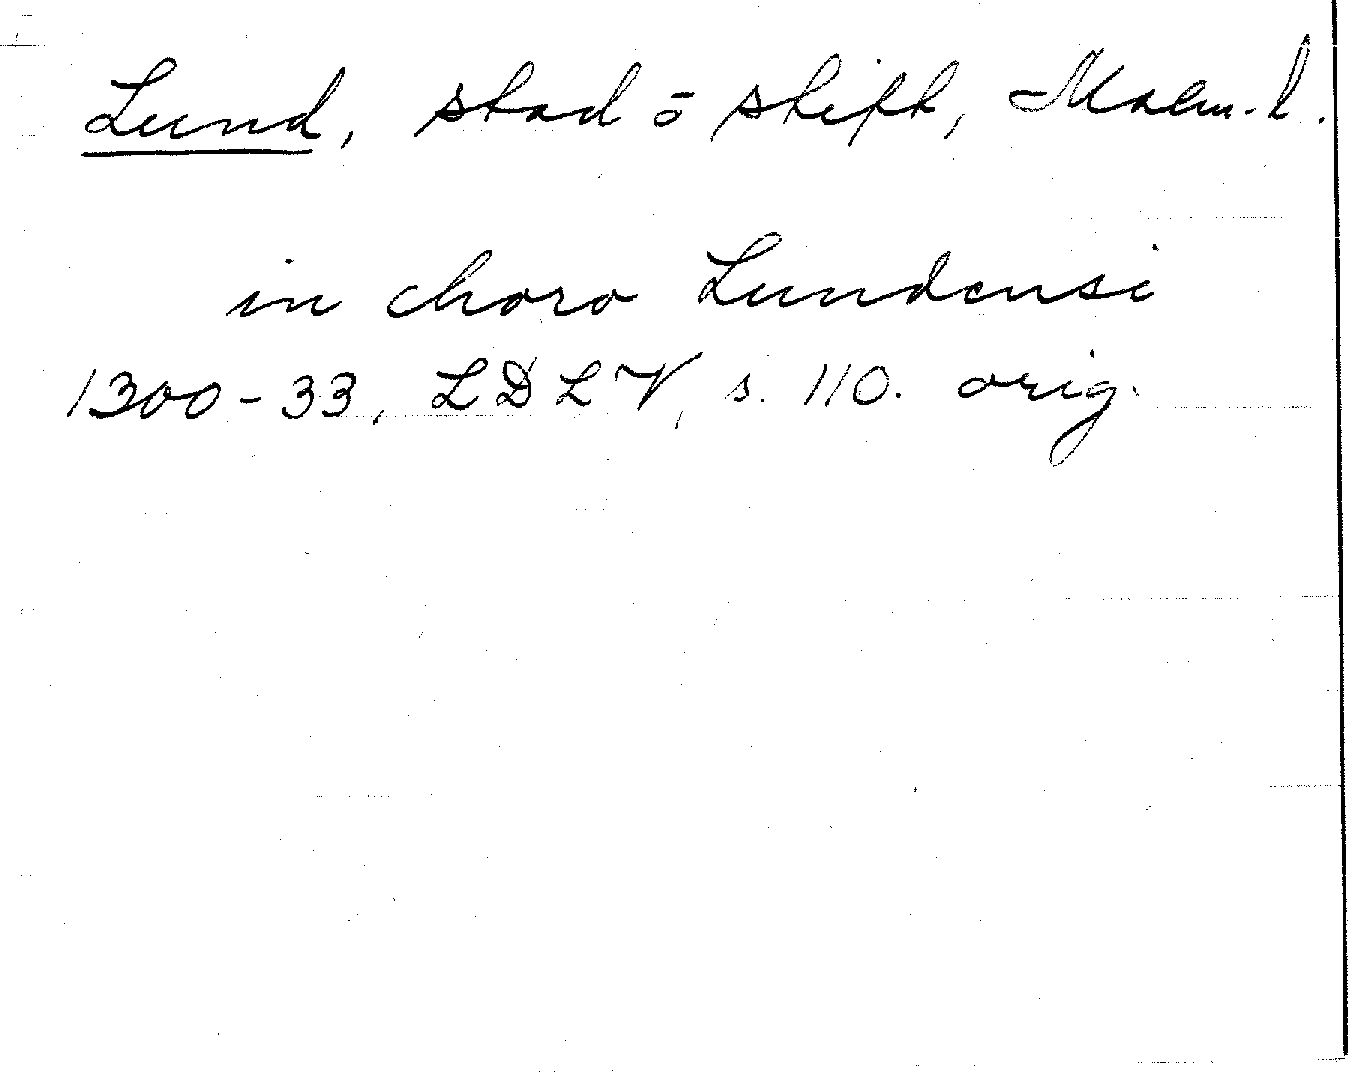 Lund, stad o stift, Malm. l.
in choro Lundensi
1300-33, LDLV, s. 110. orig.